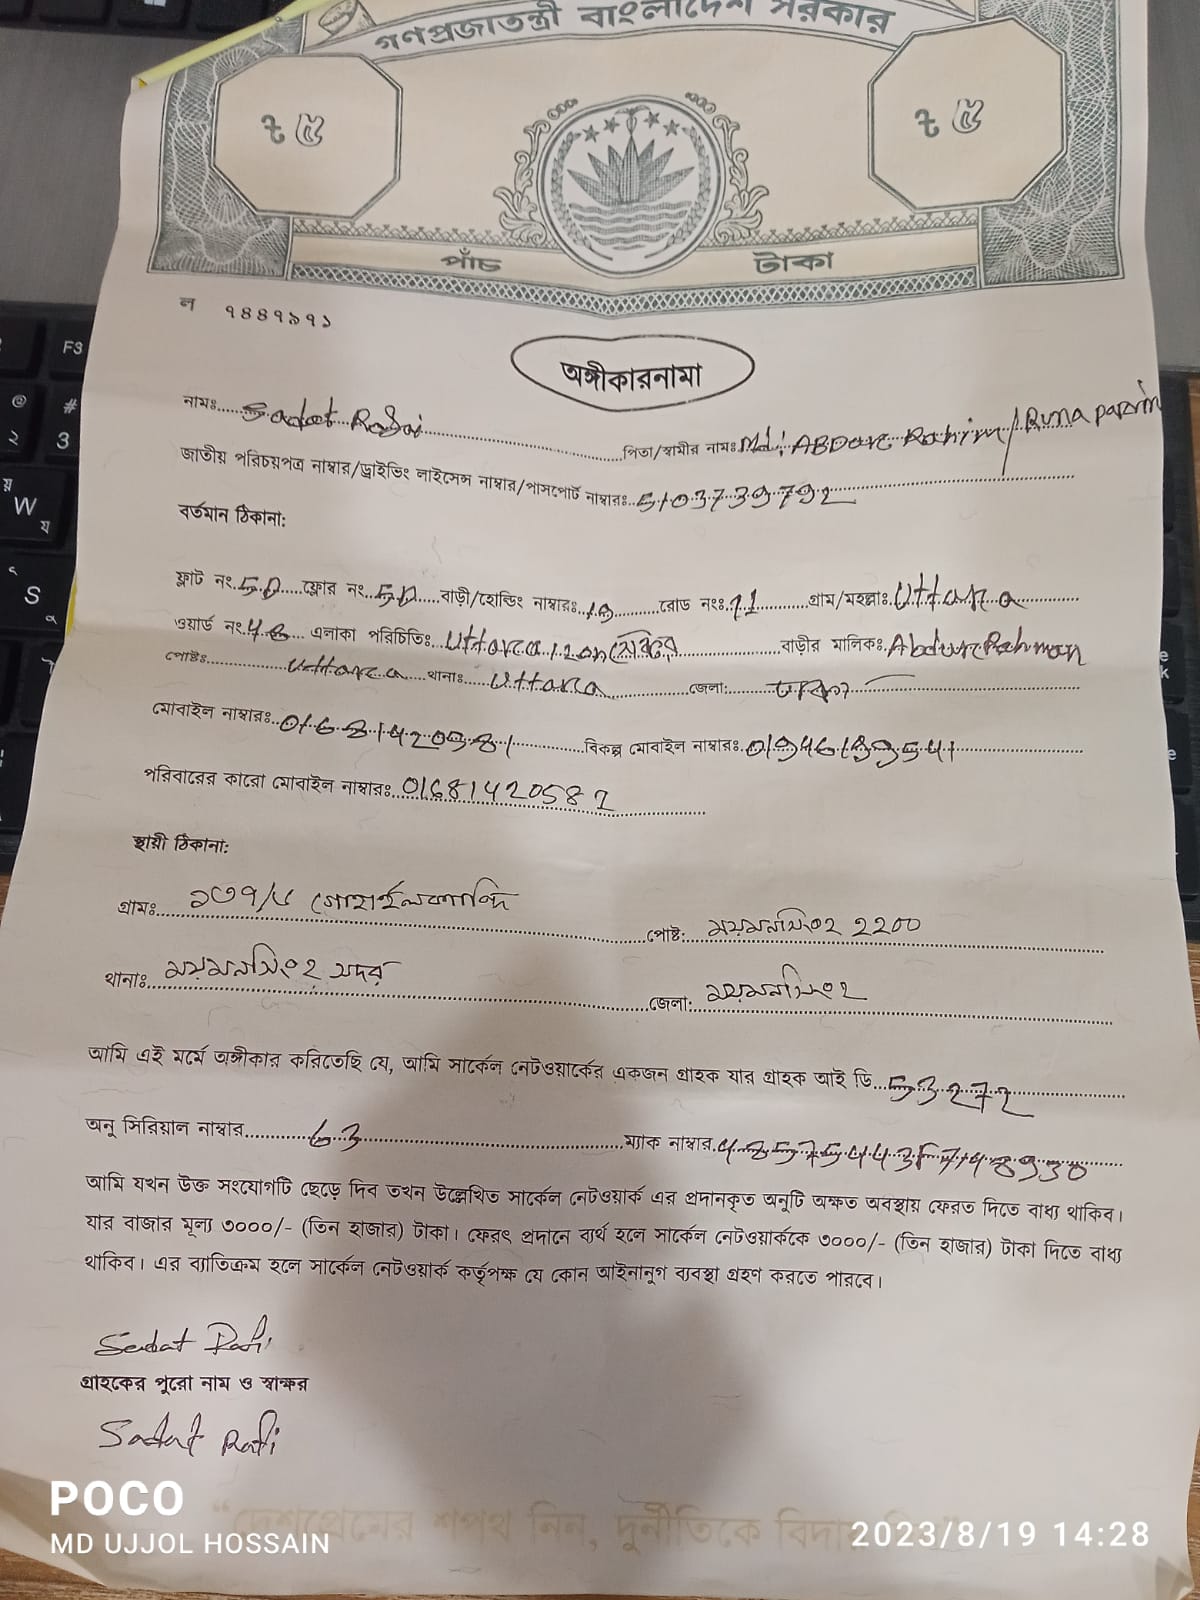 গণপ্রজাতন্ত্রী বাংলাদেশ সরকার
৳ ৫ ৳ ৫
পাঁচ টাকা
ল ৭৪৪৭৯৭১
অঙ্গীকারনামা
নামঃ Sadat Rafi পিতা/স্বামীর নামঃ Md: ABDur Rahim / Runa parvin
জাতীয় পরিচয়পত্র নাম্বার/ড্রাইভিং লাইসেন্স নাম্বার/পাসপোর্ট নাম্বারঃ 5103739792
বর্তমান ঠিকানা:
ফ্লাট নং. 5D ফ্লোর নং. 5D বাড়ী/হোল্ডিং নাম্বারঃ রোড নংঃ 11 গ্রাম/মহল্লাঃ Uttara
ওয়ার্ড নং. এলাকা পরিচিতিঃ Uttara বাড়ীর মালিকঃ Abdur Rahman
পোষ্টঃ Uttara থানাঃ Uttara জেলা: ঢাকা
মোবাইল নাম্বারঃ বিকল্প মোবাইল নাম্বারঃ
পরিবারের কারো মোবাইল নাম্বারঃ 01681420582
স্থায়ী ঠিকানা:
গ্রামঃ পোষ্ট: ময়মনসিংহ 2200
থানাঃ ময়মনসিংহ সদর জেলা: ময়মনসিংহ
আমি এই মর্মে অঙ্গীকার করিতেছি যে, আমি সার্কেল নেটওয়ার্কের একজন গ্রাহক যার গ্রাহক আই ডি 53272
অনু সিরিয়াল নাম্বার 63 ম্যাক নাম্বার
আমি যখন উক্ত সংযোগটি ছেড়ে দিব তখন উল্লেখিত সার্কেল নেটওয়ার্ক এর প্রদানকৃত অনুটি অক্ষত অবস্থায় ফেরত দিতে বাধ্য থাকিব।
যার বাজার মূল্য ৩০০০/- (তিন হাজার) টাকা। ফেরৎ প্রদানে ব্যর্থ হলে সার্কেল নেটওয়ার্ককে ৩০০০/- (তিন হাজার) টাকা দিতে বাধ্য
থাকিব। এর ব্যাতিক্রম হলে সার্কেল নেটওয়ার্ক কর্তৃপক্ষ যে কোন আইনানুগ ব্যবস্থা গ্রহণ করতে পারবে।
Sadat Rafi
গ্রাহকের পুরো নাম ও স্বাক্ষর
Sadat Rafi
"দেশপ্রেমের শপথ নিন, দুর্নীতিকে
POCO
MD UJJOL HOSSAIN 2023/8/19 14:28